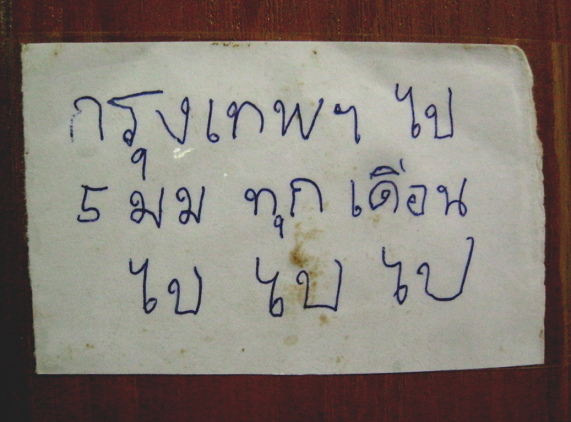 กรุงเทพฯ ไป
5 มม ทุก เดือน
ไป ไป ไป